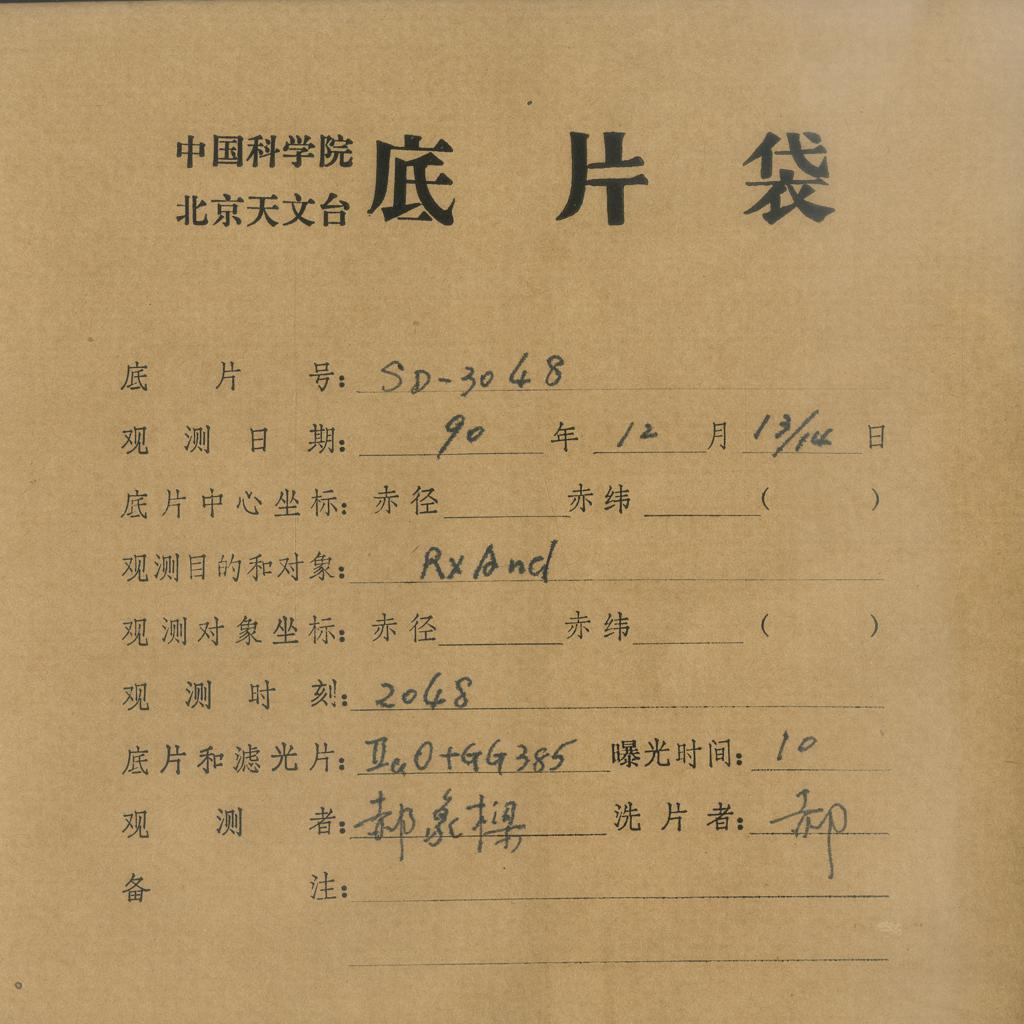 中国科学院
北京天文台
底片袋
底片号：SD-3048
观测日期：90年12月13/14日
底片中心坐标：赤径 赤纬 （ ）
观测目的和对象：Rx And
观测对象坐标：赤径 赤纬 （ ）
观测时刻：2048
底片和滤光片：IIaO+GG385 曝光时间：10
观测者：郝象樑 洗片者：郝
备注：